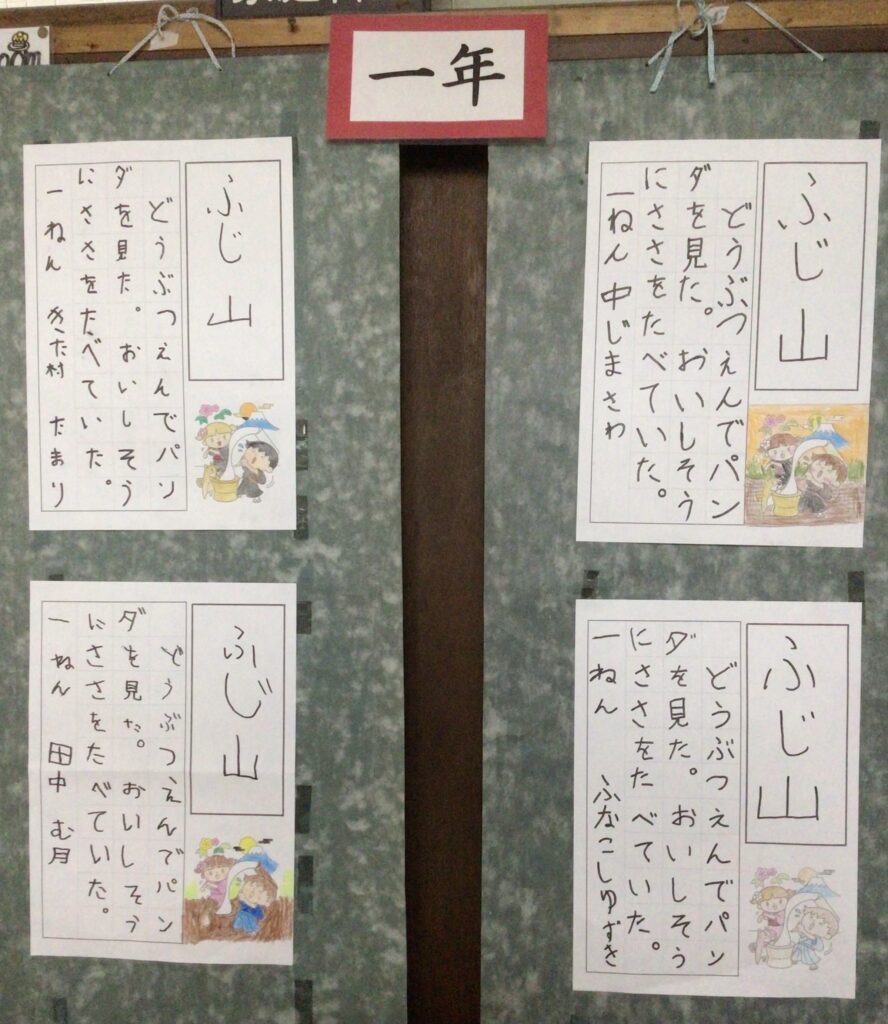 一年
ふじ山
どうぶつえんでパン
ダを見た。おいしそう
にささをたべていた。
一ねん 中じまさわ
ふじ山
どうぶつえんでパン
ダを見た。おいしそう
にささをたべていた。
一ねん ふなこしゆずき
ふじ山
どうぶつえんでパン
ダを見た。おいしそう
にささをたべていた。
一ねん きた村 たまり
ふじ山
どうぶつえんでパン
ダを見た。おいしそう
にささをたべていた。
一ねん 田中 む月